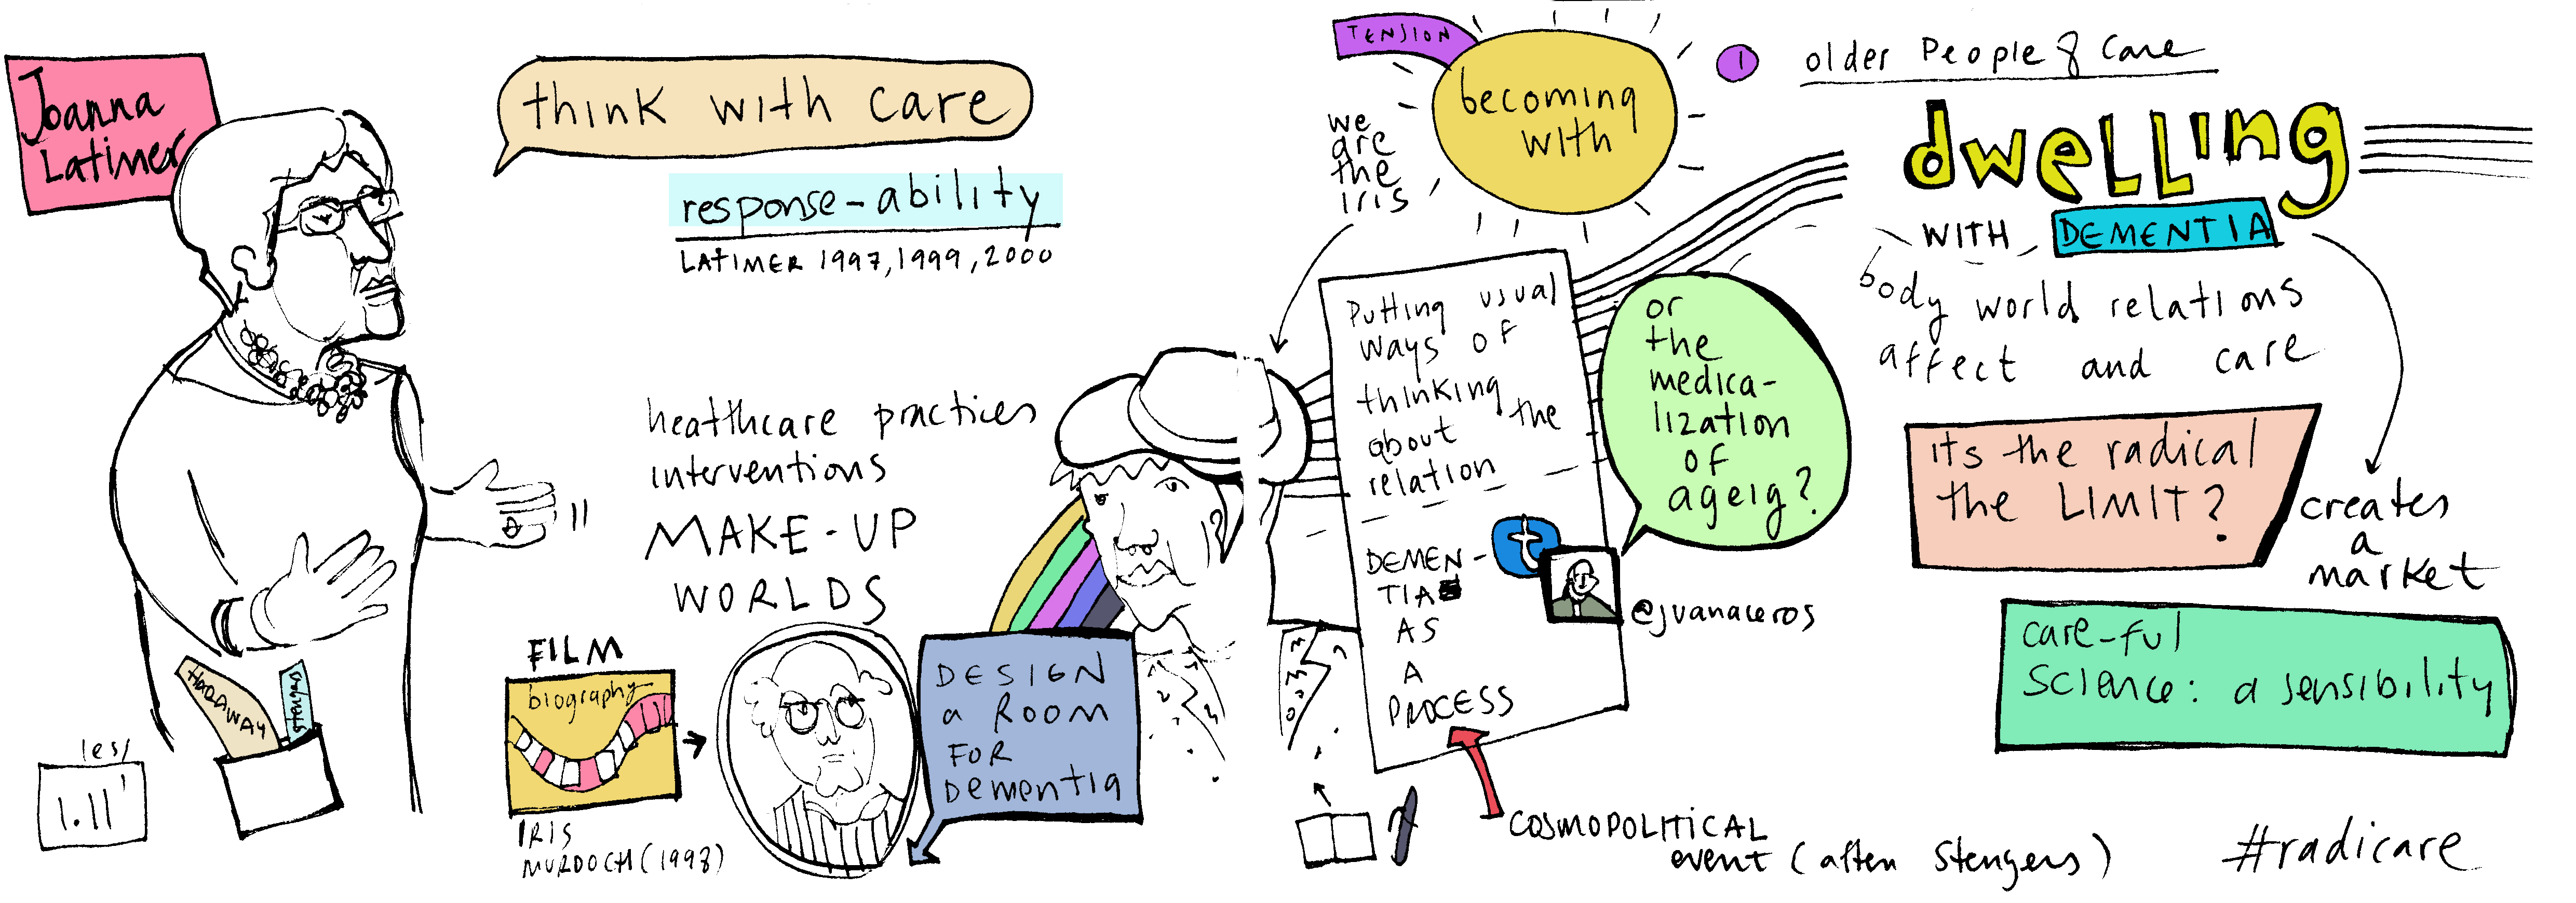 Joanna
Latimer
think with care
response-ability
LATIMER 1997, 1999, 2000
healthcare practices
interventions
MAKE-UP
WORLDS
HARAWAY
Stengers
/es/
1.11'
FILM
biography
IRIS
MURDOCH (1998)
DESIGN
a ROOM
FOR
Dementia
TENSION
becoming
with
we
are
the
iris
Putting usual
ways of
thinking
about the
relation
DEMEN-
TIA
AS
A
PROCESS
t
or
the
medica-
lization
of
ageig?
@juanaceros
COSMOPOLITICAL
event (after Stengers)
1
older People & Care
dwelling
WITH DEMENTIA
body world relations
affect and care
its the radical
the LIMIT?
creates
a
market
care-ful
science: a sensibility
#radicare